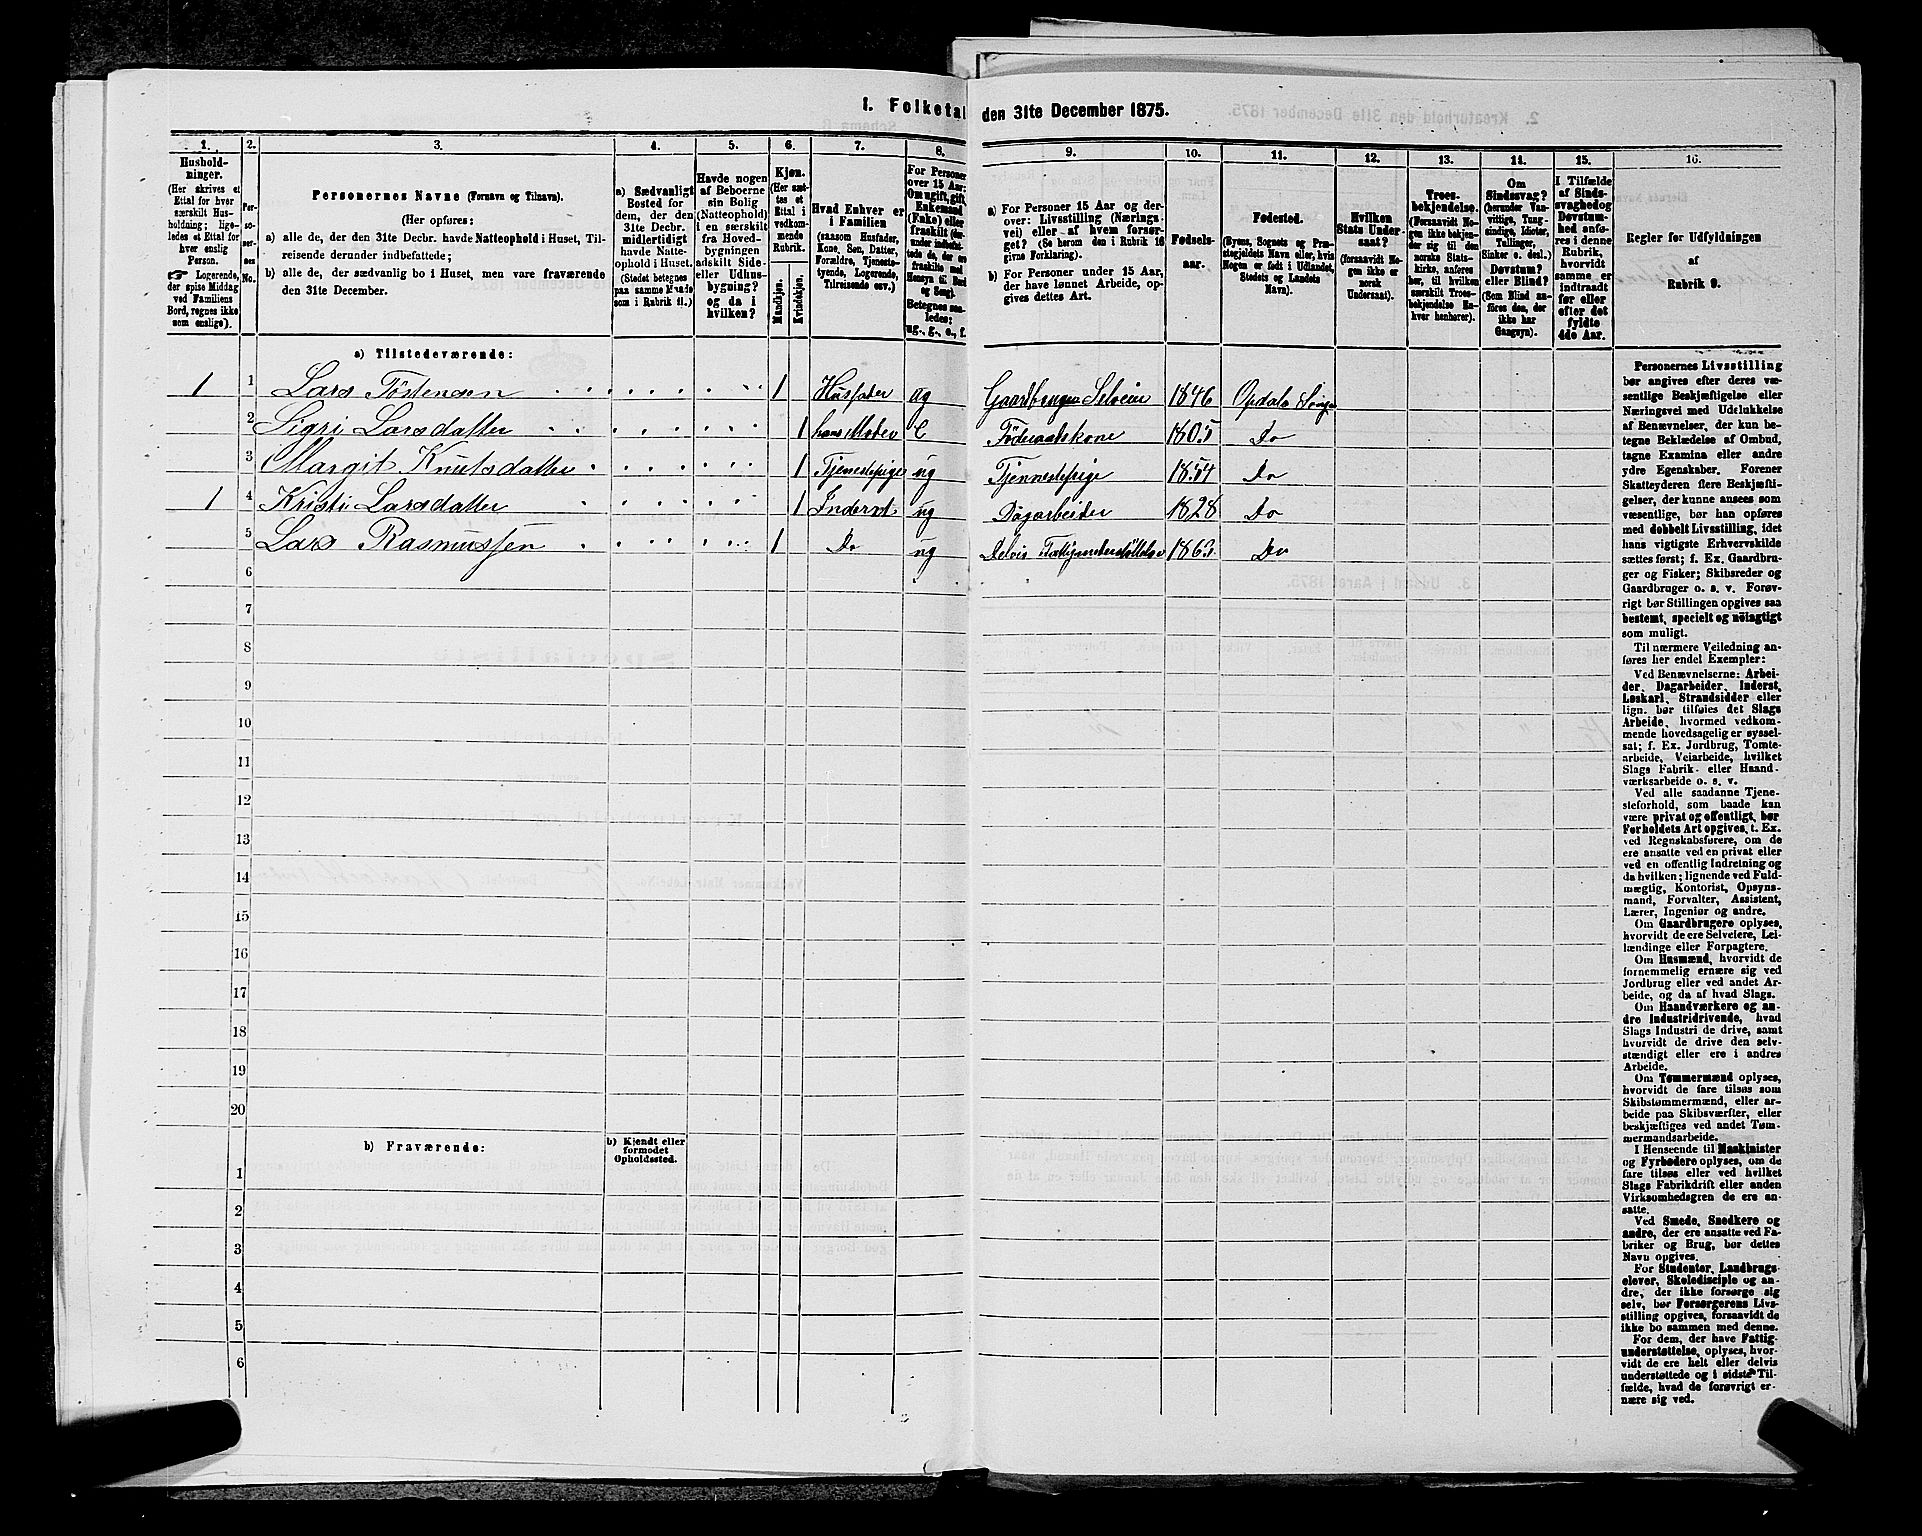 1. Folketal den 31te December 1875.
1. 2. 3. 4. 5. 6. 7. 8. 9. 10. 11. 12. 13. 14. 15. 16.
Hushold-
ninger.
(Her skrives et
Ettal for hver
særskilt Hus-
holdning; lige-
ledes et Ettal for
hver enslig
Person.
☞ Logerende,
der spise Middag
ved Familiens
Bord, regnes ikke
som enslige).
Per-
so-
ner-
nes
No.
Personernes Navne (Fornavn og Tilnavn).
(Her opføres:
a) alle de, der den 31te Decbr. havde Natteophold i Huset, Til-
reisende derunder indbefattede;
b) alle de, der sædvanlig bo i Huset, men vare fraværende
den 31te December.
a) Sædvanligt
Bosted for
dem, der den
31te Decbr.
midlertidigt
havde Natte-
ophold i Huset.
(Stedet betegnes
paa samme Maade
som i Rubrik 11.)
Havde nogen
af Beboerne
sin Bolig
(Natteophold)
i en særskilt
fra Hoved-
bygningen
adskilt Side-
eller Udhus-
bygning?
og da i
hvilken?
Kjøn.
(Her sæt-
tes et
Ettal i
vedkom-
mende
Rubrik.
Mandkjøn.
Kvindekjøn.
Hvad Enhver er
i Familien
(saasom Husfader,
Kone, Søn, Datter,
Forældre, Tjeneste-
tyende, Logerende,
Tilreisende osv.)
For Personer
over 15 Aar:
Om ugift, gift,
Enkemand
(Enke) eller
fraskilt
Betegnes saa-
ledes:
ug., g., e., f.
a) For Personer 15 Aar og der-
over: Livsstilling (Nærings-
vei) eller af hvem forsør-
get? (Se herom den i Rubrik 16
givne Forklaring).
b) For Personer under 15 Aar,
der have lønnet Arbeide, op-
gives dettes Art.
Fødsels-
aar.
Fødested.
(Byens, Sognets og Præ-
stegjeldets Navn eller, hvis
Nogen er født i Udlandet,
Stedets og Landets
Navn).
Hvilken
Stats Under-
saat?
(forsaavidt No-
gen ikke er
norsk
Undersaat).
Troes-
bekjendelse.
(Forsaavidt No-
gen ikke bekjen-
der sig til den
norske Stats-
kirke, anføres
her, til hvilken
særskilt Troes-
bekjendelse En-
hver henhører).
Om
Sindssvag?
(herunder Van-
vittige, Tung-
sindige, Idioter,
Tullinger,
Sinker o. desl.)
Døvstum?
eller Blind?
(Som Blind an-
føres den, der
ikke har
Gangsyn).
I Tilfælde
af Sinds-
svaghed og
Døvstum-
hed anfø-
res i denne
Rubrik,
hvorvidt
samme er
indtraadt
før eller
efter det
fyldte
4de Aar.
Regler for Udfyldningen
af
Rubrik 9.
a) Tilstedeværende:
1 1 Lars Tostensen 1 Husfader ug Gaardbruger Selveier 1846 Opdals Sogn
2 Sigri Larsdatter 1 hans Moder E Föderaadskone 1805 Do
3 Margit Knutsdatter 1 Tjenestepige ug Tjennestepige 1854 Do
1 4 Kristi Larsdatter 1 Inderst ug Dagarbeider 1828 Do
5 Lars Rasmussen 1 Do ug Delvis Fattigunderstøttelse 1863 Do
6
7
8
9
10
11
12
13
14
15
16
17
18
19
20
b) Fraværende:
b) Kjendt eller
formodet
Opholdssted.
1
2
3
4
5
6
Personernes Livsstilling
bør angives efter deres væ-
sentlige Beskjæftigelse eller
Næringsvei med Udelukkelse
af Benævnelser, der kun be-
tegne Beklædelse af Ombud,
tagne Examina eller andre
ydre Egenskaber. Forener
Skatteyderen flere Beskjæfti-
gelser, der kunne ansees som
væsentlige, bør han opføres
med dobbelt Livsstilling, idet
hans vigtigste Erhvervskilde
sættes først; f. Ex. Gaardbru-
ger og Fisker; Skibsreder og
Gaardbruger o. s. v. Forøv-
rigt bør Stillingen opgives saa
bestemt, specielt og nöiagtigt
som muligt.
Til nærmere Veiledning an-
føres her endel Exempler:
Ved Benævnelserne: Arbei-
der, Dagarbeider, Inderst,
Løskarl, Strandsidder eller
lign. bør tilføies det Slags
Arbeide, hvormed vedkom-
mende hovedsagelig er syssel-
sat; f. Ex. Jordbrug, Tomte-
arbeide, Veiarbeide, hvilket
Slags Fabrik- eller Haand-
værksarbeide o. s. v.
Ved alle saadanne Tjene-
steforhold, som baade kan
være privat og offentligt, bør
Forholdets Art opgives, t. Ex.
ved Regnskabsførere, om de
ere ansatte ved en privat eller
ved en offentlig Indretning og
da hvilken; lignende ved Fuld-
mægtig, Kontorist, Opsyns-
mand, Forvalter, Assistent,
Lærer, Ingeniør og andre.
Om Gaardbrugere oplyses,
hvorvidt de ere Selveiere, Lei-
lændinge eller Forpagtere.
Om Husmænd, hvorvidt de
fornemmelig ernære sig ved
Jordbrug eller ved andet Ar-
beide, og da af hvad Slags.
Om Haandværkere og an-
dre Industridrivende, hvad
Slags Industri de drive, samt
hvorvidt de drive den selv-
stændigt eller ere i andres
Arbeide.
Om Tømmermænd oplyses,
hvorvidt de fare tilsøs som
Skibstømmermænd, eller ar-
beide paa Skibsværfter, eller
beskjæftiges ved andet Tøm-
mermandsarbeide.
I Henseende til Maskinister
og Fyrbødere oplyses, om de
fare tilsøs eller ved hvilket
Slags Fabrikdrift eller anden
Virksomhedsgren de ere an-
satte.
Ved Smede, Snedkere og
andre, der ere ansatte ved Fa-
briker og Brug, bør dettes
Navn opgives.
For Studenter, Landbrugs-
elever, Skoledisciple og an-
dre, der ikke forsørge sig
selv, bør Forsørgerens Livs-
stilling opgives, forsaavidt de
ikke bo sammen med denne.
For dem, der have Fattig-
understøttelse, oplyses, hvor-
vidt de ere helt eller delvis
understøttede og i sidste Til-
fælde, hvad de forøvrigt er-
nære sig ved.